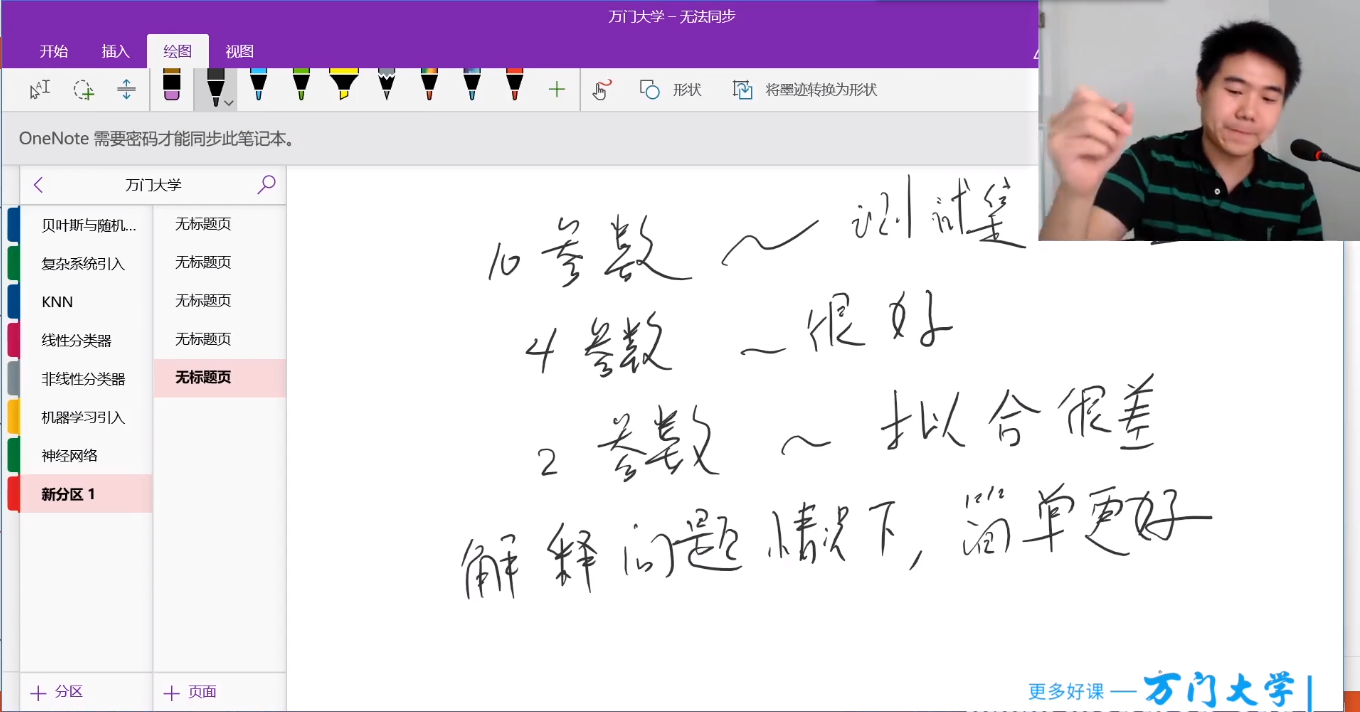 万门大学 – 无法同步
开始 插入 绘图 视图
形状 将墨迹转换为形状
OneNote 需要密码才能同步此笔记本。
万门大学
贝叶斯与随机...
复杂系统引入
KNN
线性分类器
非线性分类器
机器学习引入
神经网络
新分区 1
无标题页
无标题页
无标题页
无标题页
无标题页
10 参数 ~ 测试集
4 参数 ~ 很好
2 参数 ~ 拟合很差
解释问题情况下, 简单更好
+ 分区
+ 页面
更多好课 — 万门大学